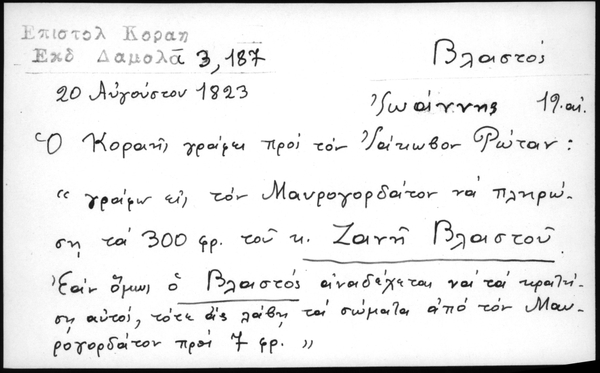 Επιστολ Κοραη
Εκδ Δαμολᾶ 3, 187
Βλαστός
20 Αὐγούστου 1823
Ἰωάννης 19. αἰ.
Ὁ Κοραῆς γράφει πρὸς τὸν Ἰάκωβον Ρώταν:
“ γράφω εἰς τὸν Μαυρογορδάτον νὰ πληρώ-
ση τὰ 300 φρ. τοῦ κ. Ζανῆ Βλαστοῦ.
Ἐὰν ὅμως ὁ Βλαστός ἀναδέχεται νὰ τὰ κρατή-
ση αὐτός, τότε ἂς λάβη τὰ σώματα ἀπὸ τὸν Μαυ-
ρογορδάτον πρὸς 7 φρ. ”